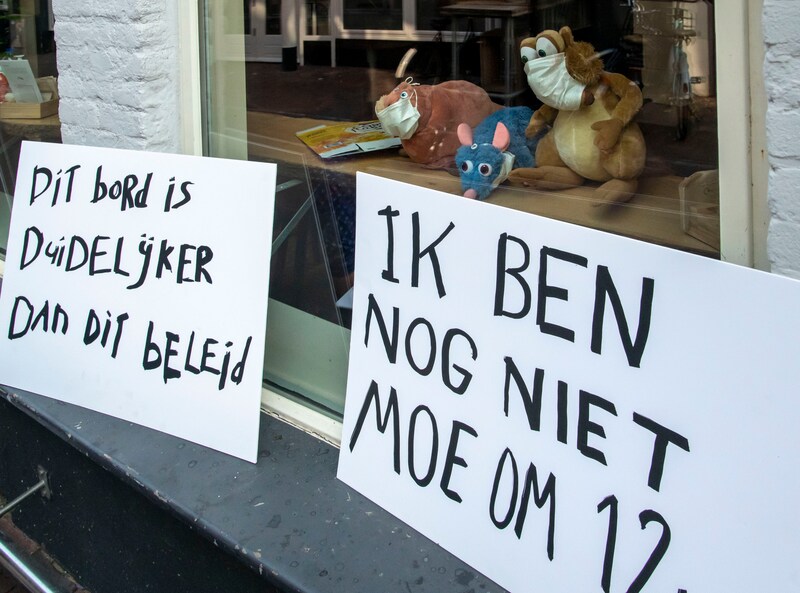 DiT boRd is
DuiDELijKER
Dan Dit BELEid
IK BEN
NOG NIET
MOE OM 12.